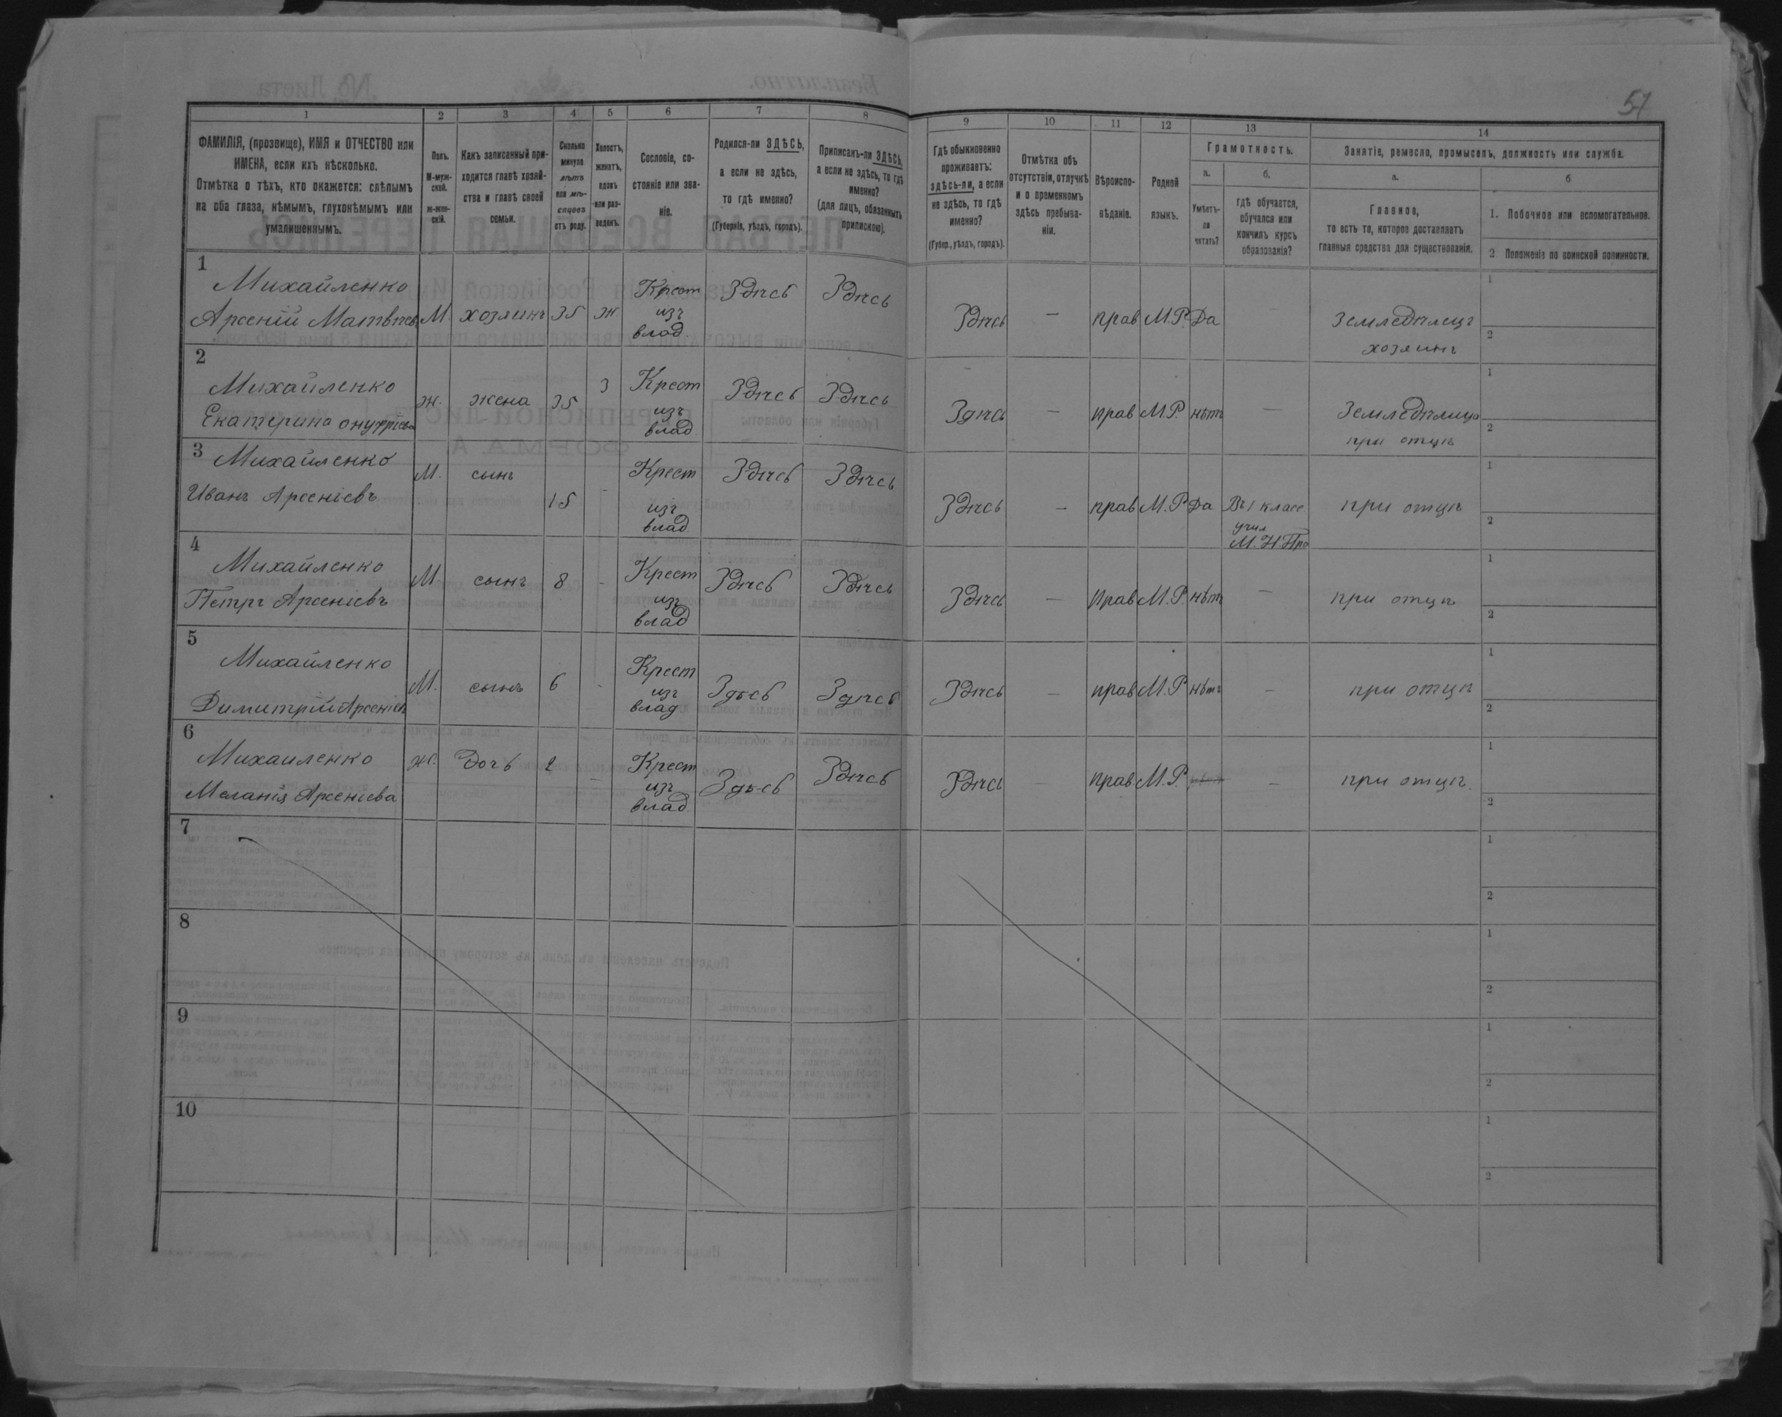 51
1 2 3 4 5 6 7 8 9 10 11 12 13 14
ФАМИЛІЯ, (прозвище), ИМЯ и ОТЧЕСТВО или
ИМЕНА, если ихъ нѣсколько.
Отмѣтка о тѣхъ, кто окажется: слѣпымъ
на оба глаза, нѣмымъ, глухонѣмымъ или
умалишеннымъ.
Полъ.
М-муж-
ской.
Ж-жен-
скій.
Какъ записанный при-
ходится главѣ хозяй-
ства и главѣ своей
семьи.
Сколько
минуло
лѣтъ
или мѣ-
сяцевъ
отъ роду.
Холостъ,
женатъ,
вдовъ
или раз-
веденъ.
Сословіе, со-
стояніе или зва-
ніе.
Родился-ли ЗДѢСЬ,
а если не здѣсь,
то гдѣ именно?
(Губернія, уѣздъ, городъ).
Приписанъ-ли ЗДѢСЬ,
а если не здѣсь, то гдѣ
именно?
(для лицъ, обязанныхъ
припискою).
Гдѣ обыкновенно
проживаетъ:
здѣсь-ли, а если
не здѣсь, то гдѣ
именно?
(Губер., уѣздъ, городъ).
Отмѣтка объ
отсутствіи, отлучкѣ
и о временномъ
здѣсь пребыва-
ніи.
Вѣроиспо-
вѣданіе.
Родной
языкъ.
Грамотность.
а.
Умѣетъ-
ли
читать?
б.
гдѣ обучается,
обучался или
кончилъ курсъ
образованія?
Занятіе, ремесло, промыселъ, должность или служба.
а.
Главное,
то есть то, которое доставляетъ
главныя средства для существованія.
б
1. Побочное или вспомогательное.
2 Положеніе по воинской повинности.
1
Михайленко
Арсеній Матвѣев М. хозяинъ 35 ж Крест
изъ
влад. Здѣсь Здѣсь Здѣсь — прав М.Р. Да — Земледѣлецъ
хозяинъ
1
2
2
Михайленко
Екатерина Онуфріева ж. жена 35 з Крест
изъ
влад Здѣсь Здѣсь Здѣсь — прав М.Р. нѣтъ — Земледѣлица
при отцѣ
1
2
3
Михайленко
Иванъ Арсеніевъ М. сынъ 15 - Крест
изъ
влад. Здѣсь Здѣсь Здѣсь — прав М.Р. Да Въ 1 класс
учил
М. Н. Пр при отцѣ
1
2
4
Михайленко
Петръ Арсеніевъ М сынъ 8 - Крест
изъ
влад Здѣсь Здѣсь Здѣсь — Прав М.Р. нѣтъ — при отцѣ
1
2
5
Михайленко
Димитрій Арсеніев М. сынъ 6 - Крест
изъ
влад Здѣсь Здѣсь Здѣсь — прав М.Р. нѣтъ — при отцѣ
1
2
6
Михаиленко
Меланія Арсеніева ж. Дочь 2 — Крест
изъ
влад. Здѣсь Здѣсь Здѣсь — прав М.Р. — при отцѣ.
1
2
7
1
2
8
1
2
9
1
2
10
1
2